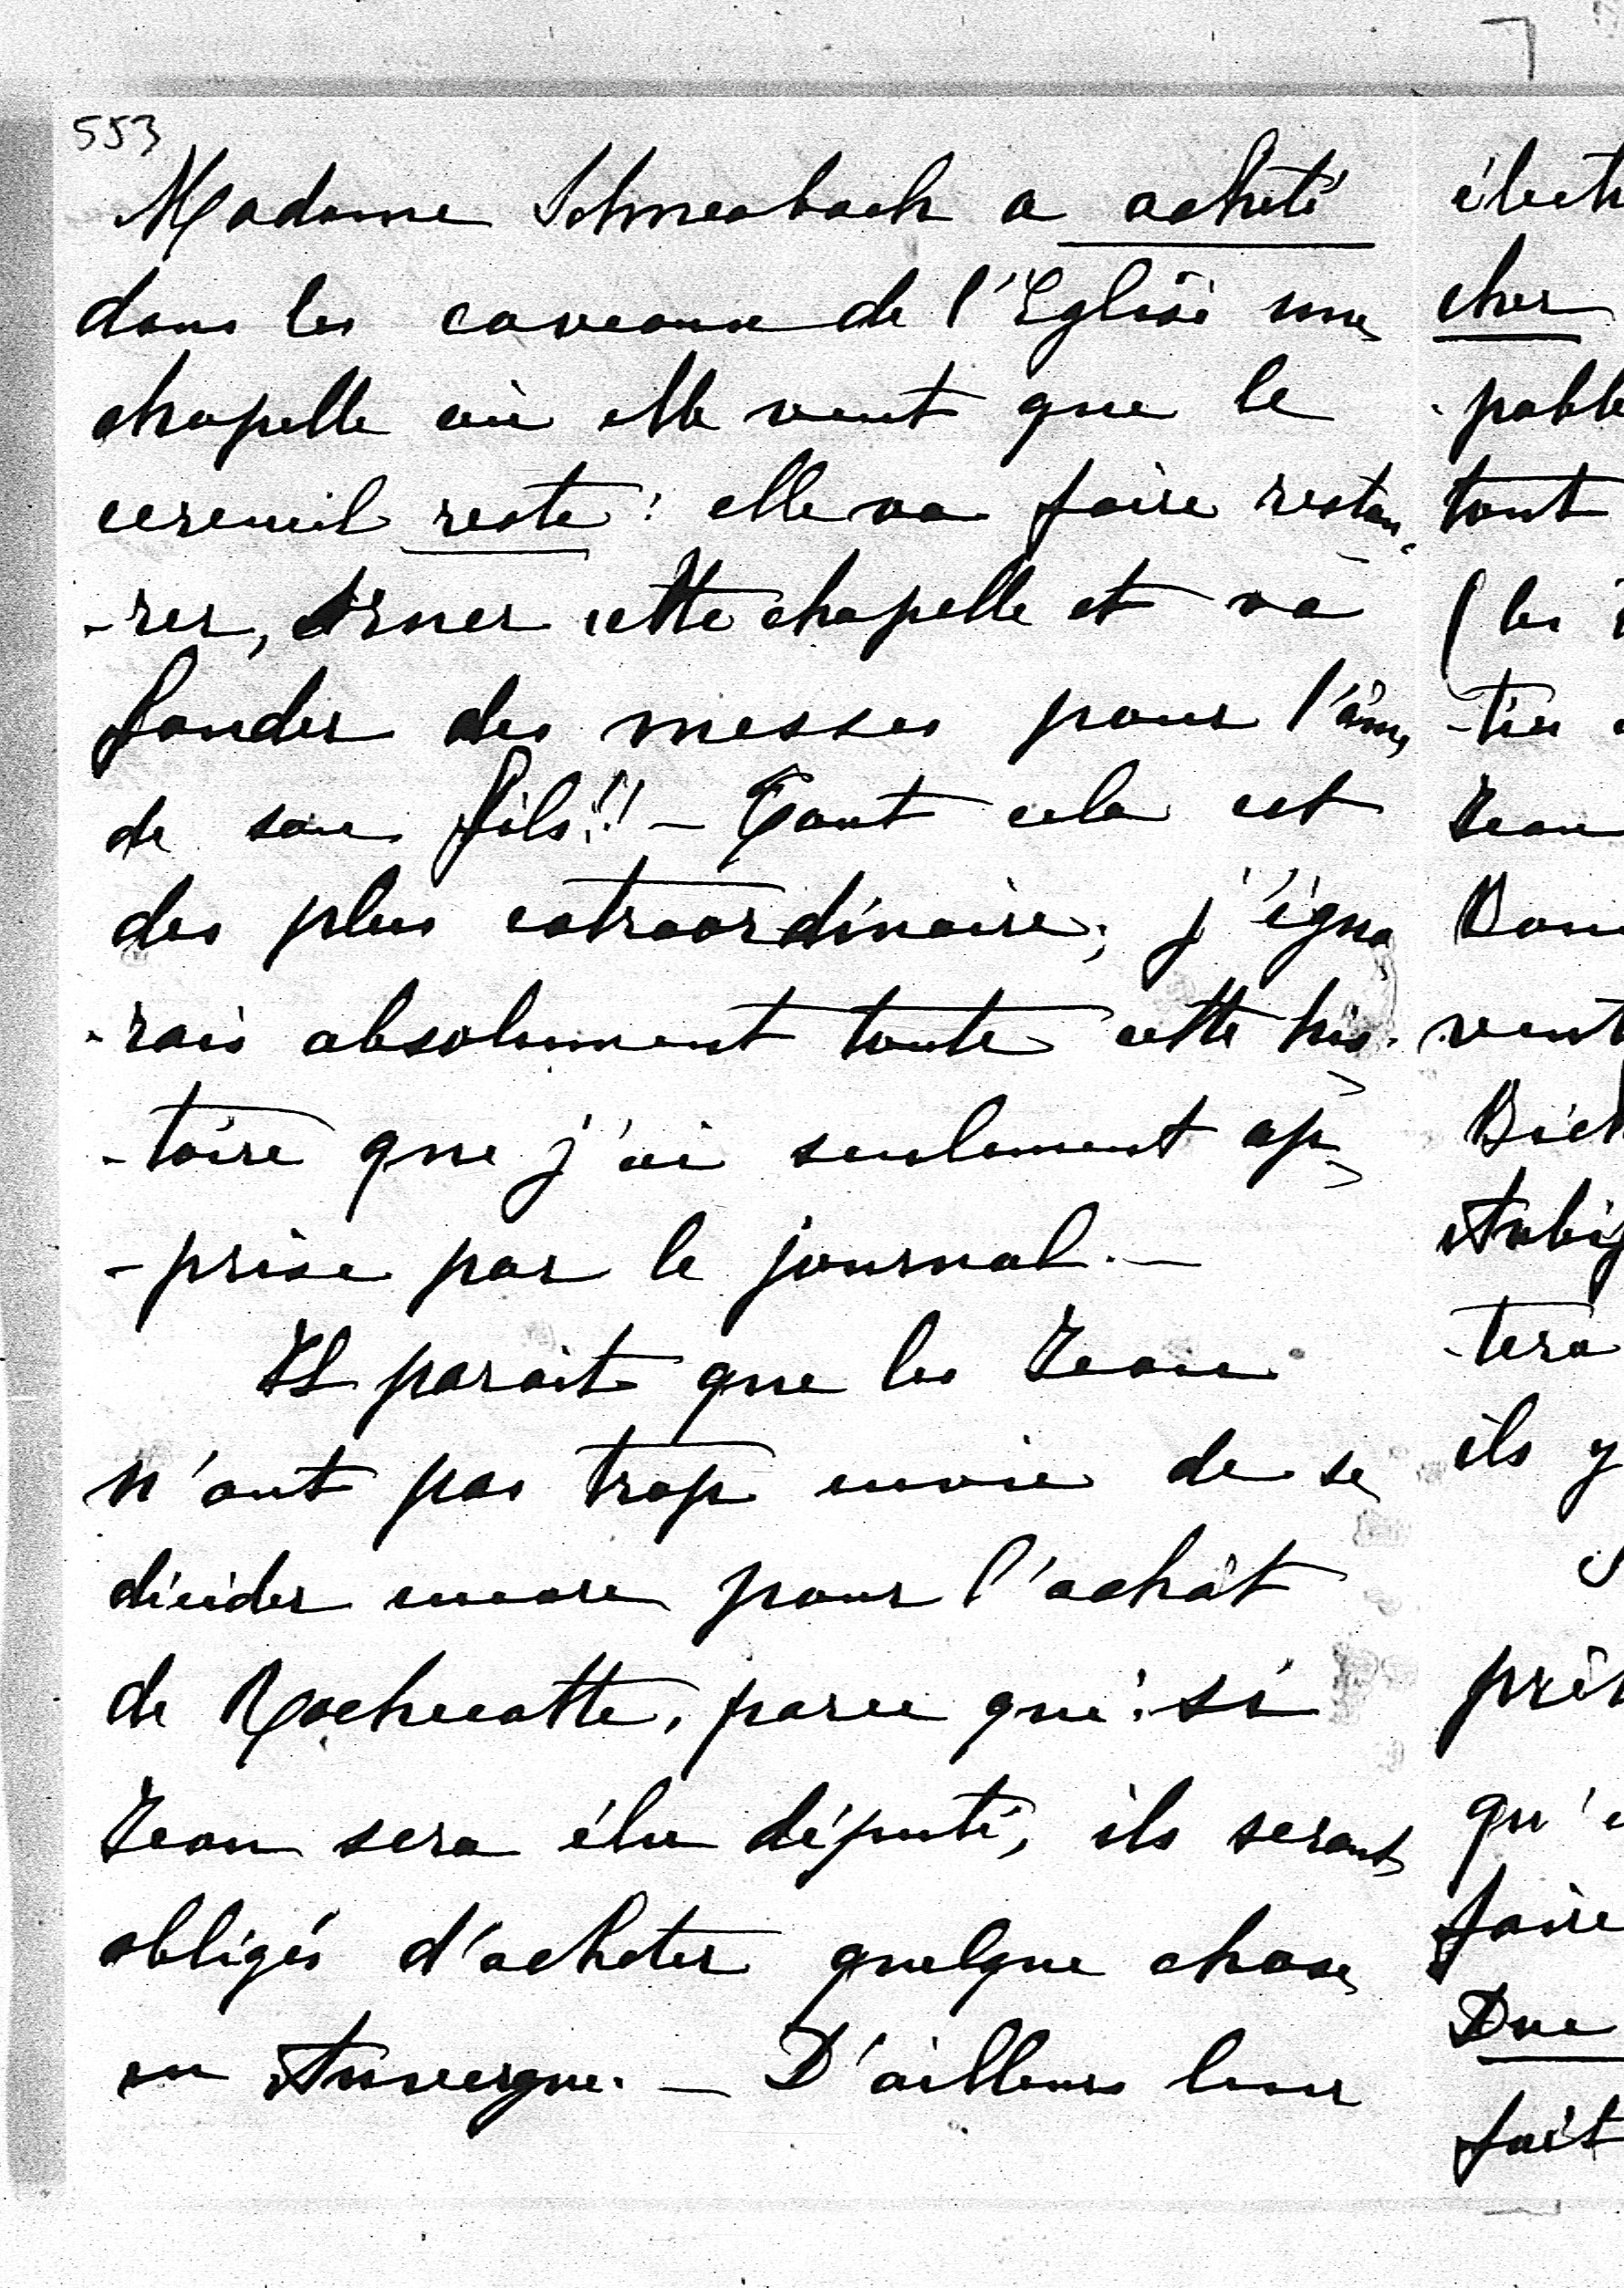 553
Madame Schneabach a acheté
dans les caveaux de l'Eglise une
chapelle où elle veut que le
cercueil reste : elle va faire restau-
-rer, orner cette chapelle et va
fonder des messes pour l'âme
de son fils !! - Tout cela est
des plus extraordinaire; j'igno
-rais absolument toute cette his-
-toire que j'ai seulement ap-
-prise par le journal. -
Il parait que les Jean
n'ont pas trop envie de se
décider encore pour l'achât
de Rochecotte, parce que si
Jean sera élu député, ils seront
obligés d'acheter quelque chose
en Auvergne. - D'ailleurs leur
cher
tout
(les
-tés
Jean
-tera
ils y
faire
Duc
fait